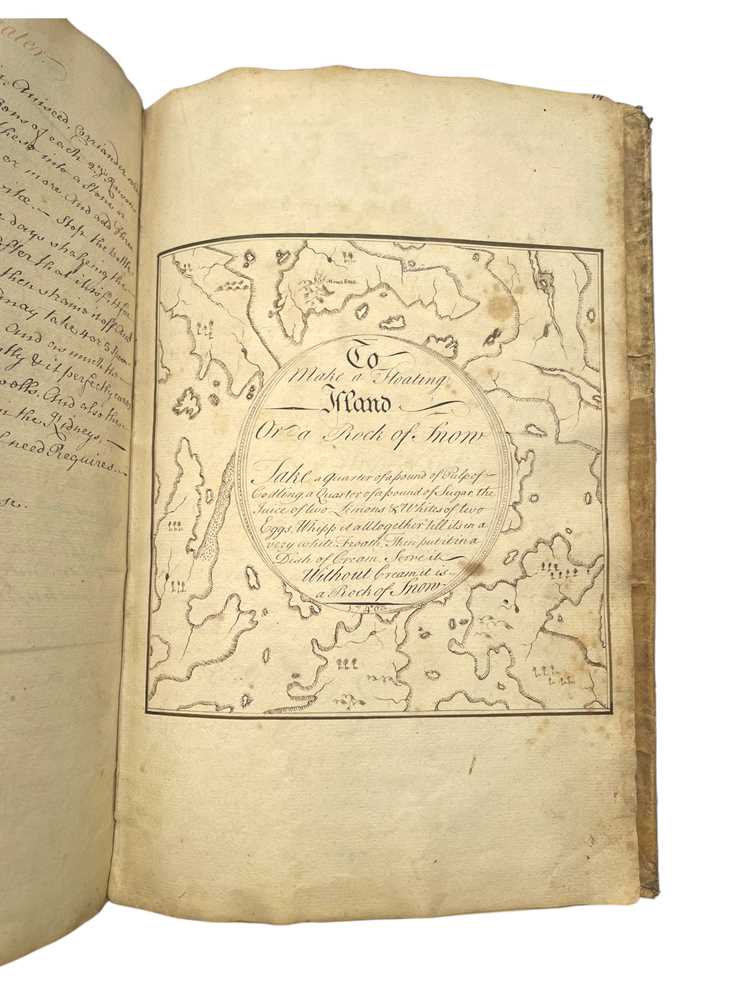 ater
Aniseed, Corriander
of each
these into a Stone
or more And add
Stop the bottle
days shakeing the
After that it is fit for
then strain it off And
may take 4 or 5 Spoon
And as much
& it perfectly
And also the
in the Kidneys,
need Requires
To
Make a Floating
Island
Or a Rock of Snow
Take a Quarter of a pound of Pulp of
Codling, a Quarter of a pound of Sugar, the
Juice of two Lemons & Whites of two
Eggs, Whipp it alltogether till its in a
very white Froath, Then put it in a
Dish of Cream, Serve it
Without Cream it is
a Rock of Snow